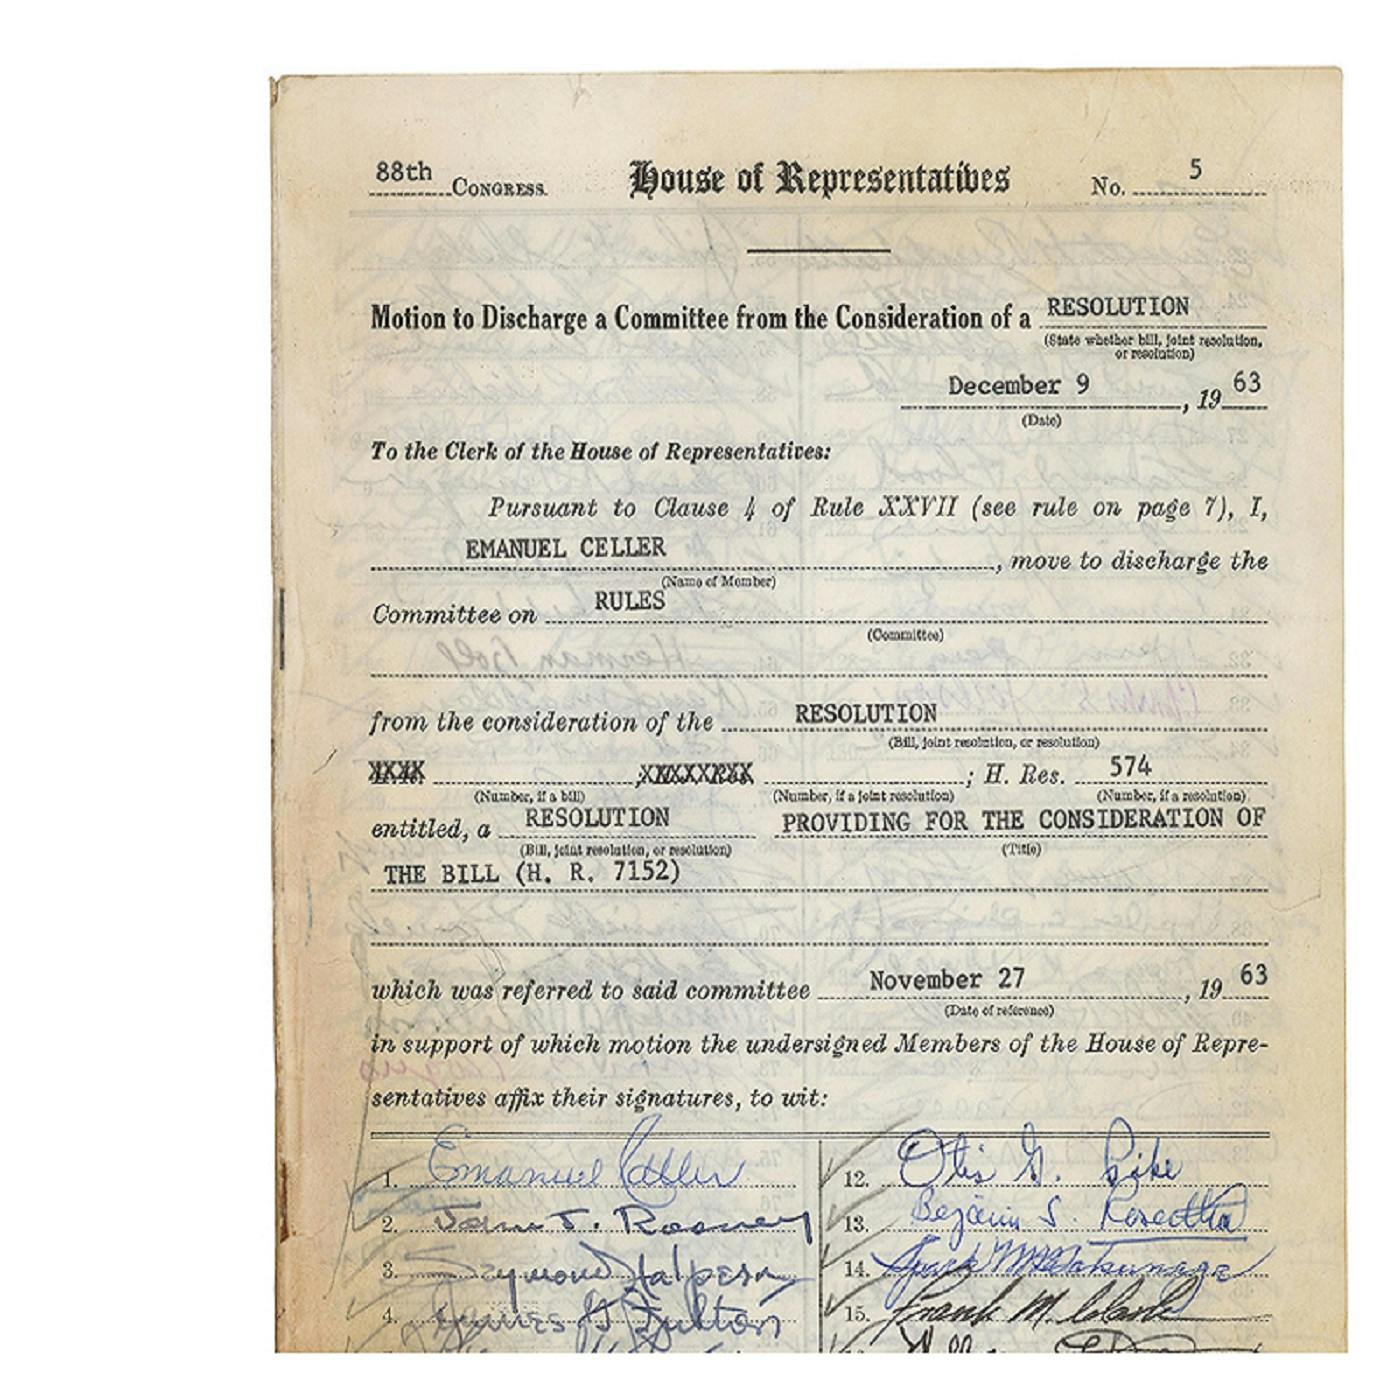 88th CONGRESS. House of Representatives No. 5
Motion to Discharge a Committee from the Consideration of a RESOLUTION
(State whether bill, joint resolution,
or resolution)
December 9, 19 63
(Date)
To the Clerk of the House of Representatives:
Pursuant to Clause 4 of Rule XXVII (see rule on page 7), I,
EMANUEL CELLER, move to discharge the
(Name of Member)
Committee on RULES
(Committee)
from the consideration of the RESOLUTION
(Bill, joint resolution, or resolution)
XXXX ,XXXXXXXX ; H. Res. 574
(Number, if a bill) (Number, if a joint resolution) (Number, if a resolution)
entitled, a RESOLUTION PROVIDING FOR THE CONSIDERATION OF
(Bill, joint resolution, or resolution) (Title)
THE BILL (H. R. 7152)
which was referred to said committee November 27, 19 63
(Date of reference)
in support of which motion the undersigned Members of the House of Repre-
sentatives affix their signatures, to wit:
1. Emanuel Celler
2. James J. Rooney
3. Seymour Halpern
4. James G Fulton
12. Otis G. Pike
13. Benjamin S. Rosenthal
14. Spark M. Matsunaga
15. Frank M. Clark